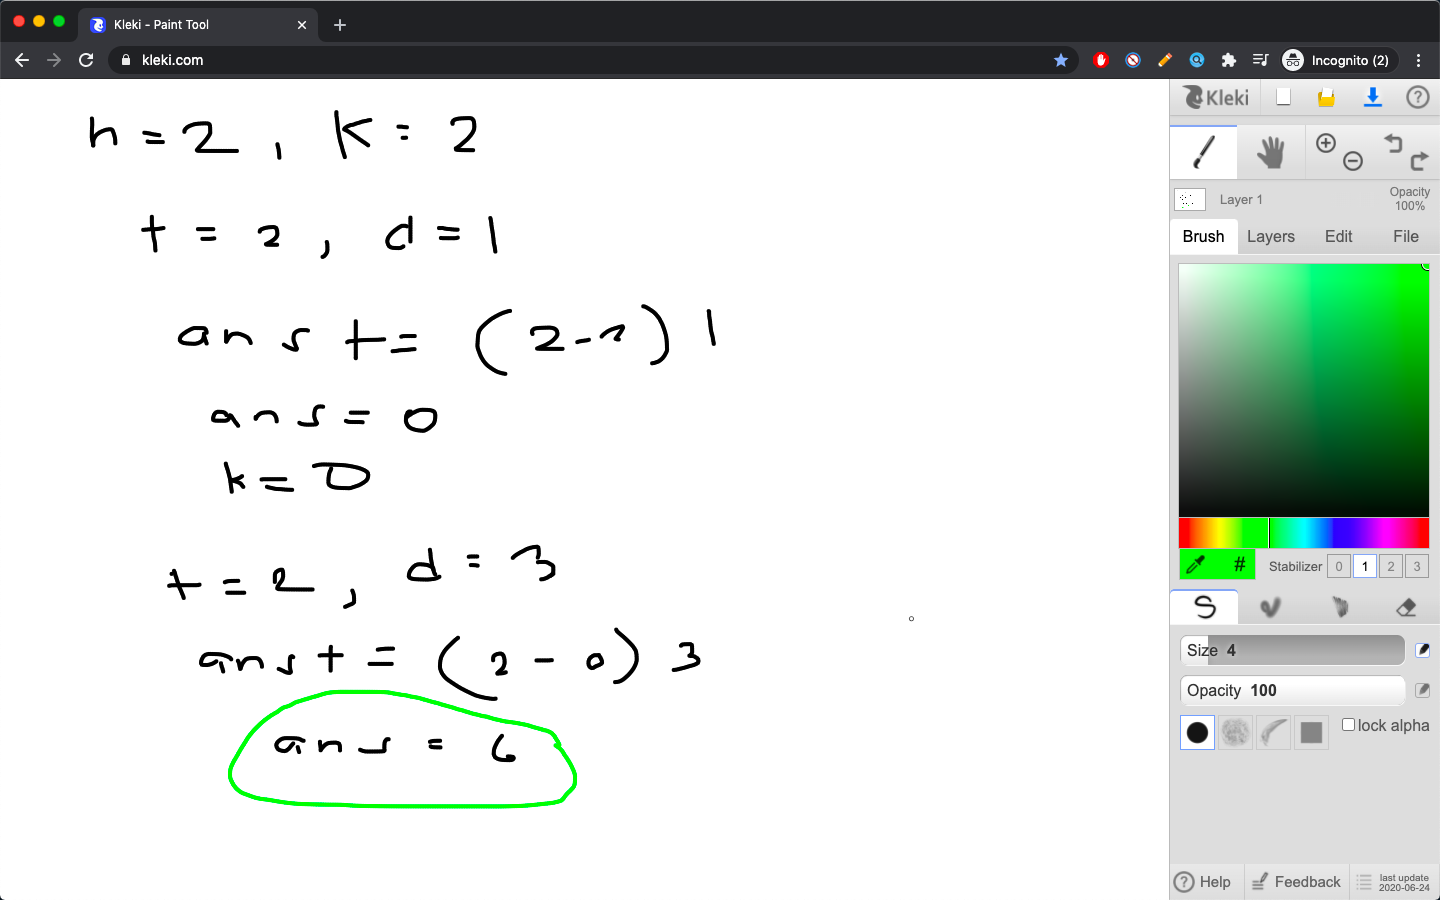 Kleki - Paint Tool
kleki.com
Incognito (2)
n = 2 , K = 2
t = 2 , d = 1
ans += (2 - 2) 1
ans = 0
k = 0
t = 2 , d = 3
ans += (2 - 0) 3
ans = 6
Kleki
Layer 1
Opacity
100%
Brush Layers Edit File
# Stabilizer 0 1 2 3
Size 4
Opacity 100
lock alpha
Help Feedback last update
2020-06-24